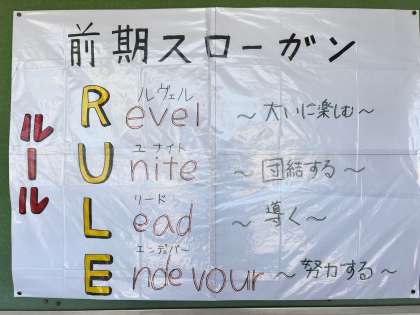 前期スローガン
ルール
ルヴェル
Revel ～大いに楽しむ～
ユナイト
Unite ～団結する～
リード
Lead ～導く～
エンデバー
Endevour ～努力する～